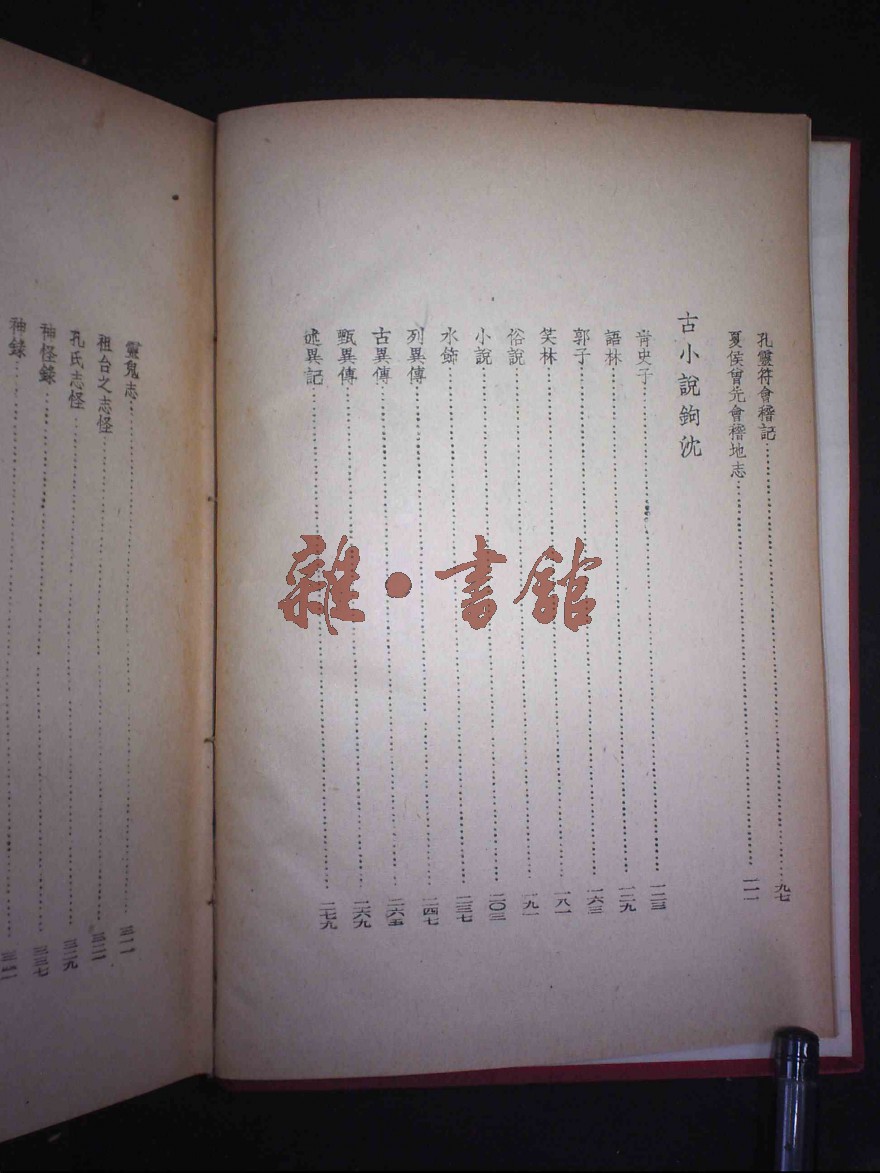 孔靈符會稽記……九七
夏侯曾先會稽地志……一一一
古小說鉤沈
青史子……一二三
語林……一二九
郭子……一六三
笑林……一八一
俗說……一九一
小說……二〇三
水飾……二三七
列異傳……二四七
古異傳……二六五
甄異傳……二六九
述異記……二七九
靈鬼志……三一一
祖台之志怪……三二一
孔氏志怪……三二九
神怪錄……三三七
神錄……三四一
雜·書館